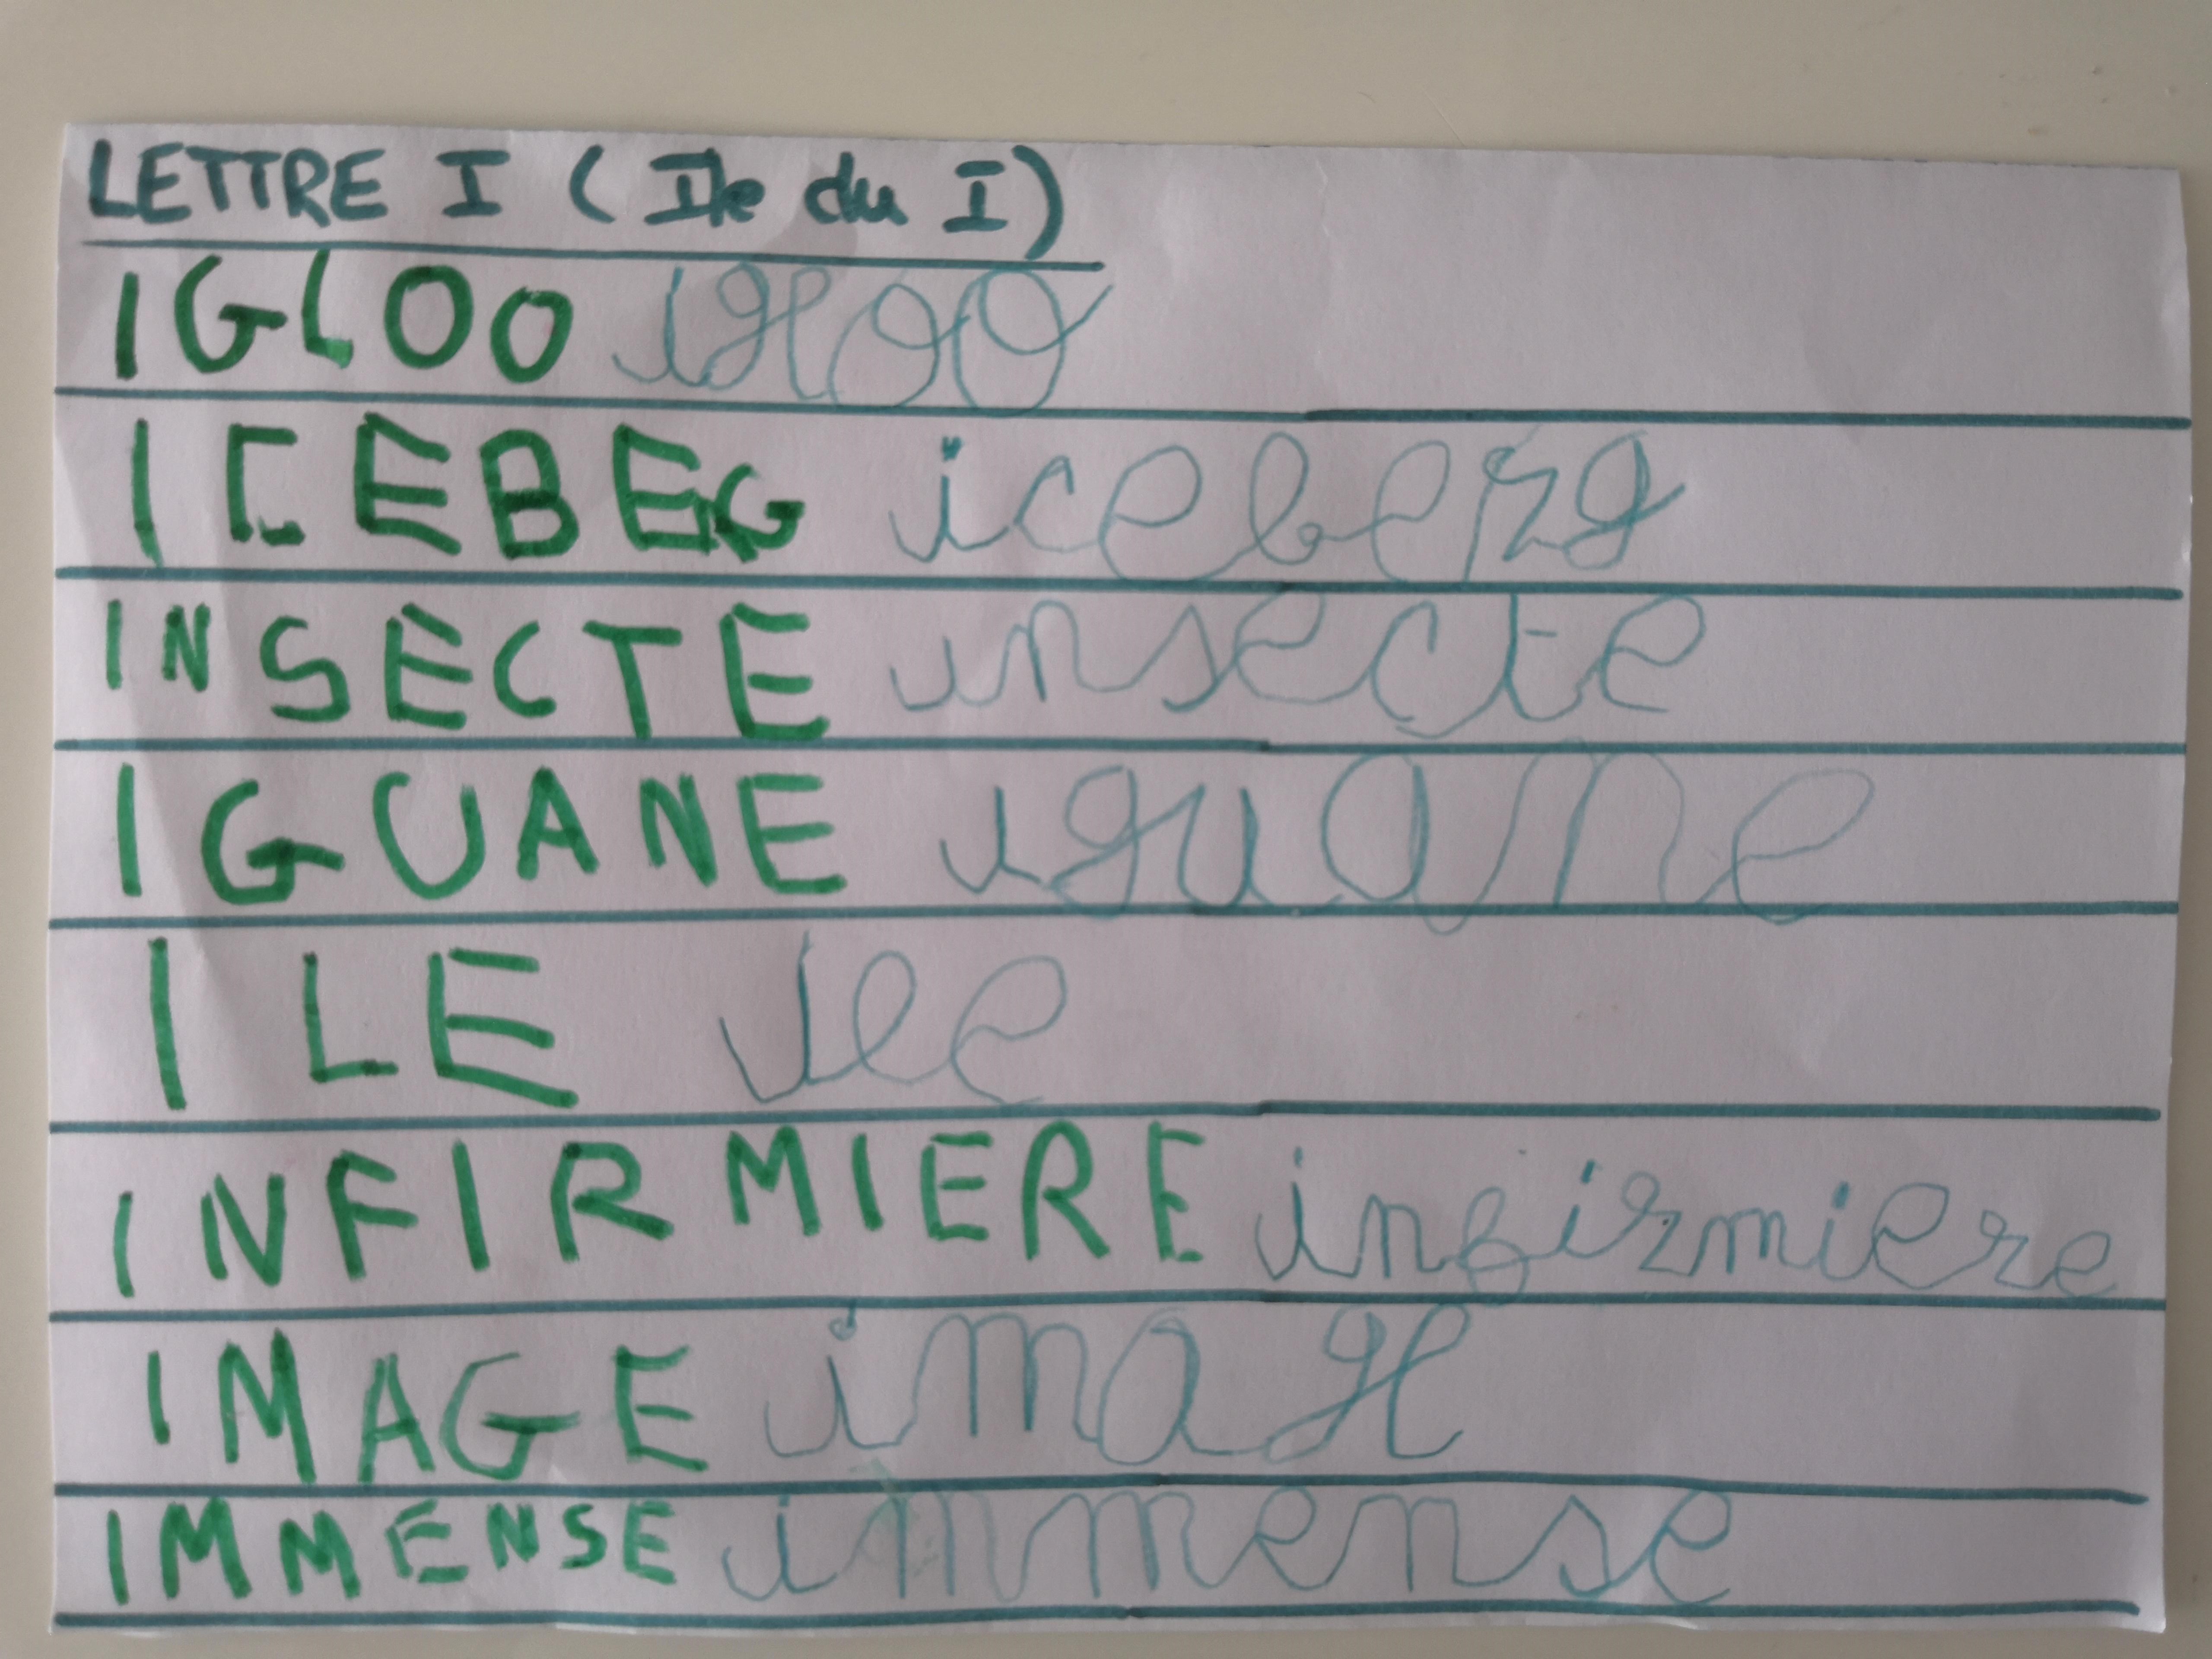 LETTRE I (Ile du I)
IGLOO igloo
ICEBEG iceberg
INSECTE insecte
IGUANE iguane
ILE ile
INFIRMIERE infirmiere
IMAGE image
IMMENSE immense